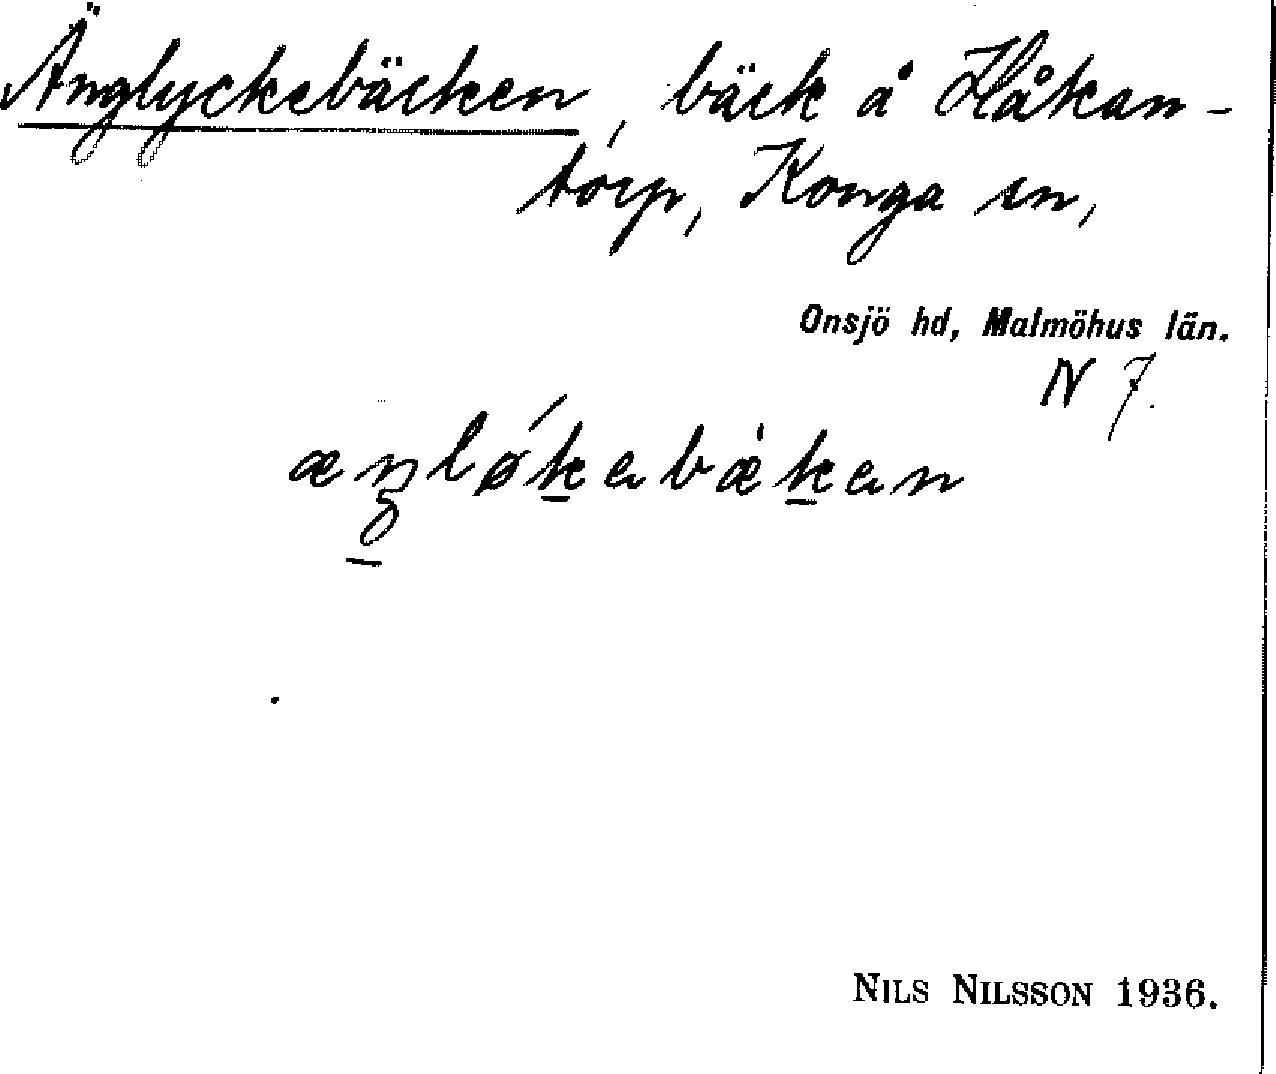 Änglyckebäcken, bäck å Håkan-
torp, Konga sn,
Onsjö hd, Malmöhus län.
N 7.
æŋløkabækan
NILS NILSSON 1936.